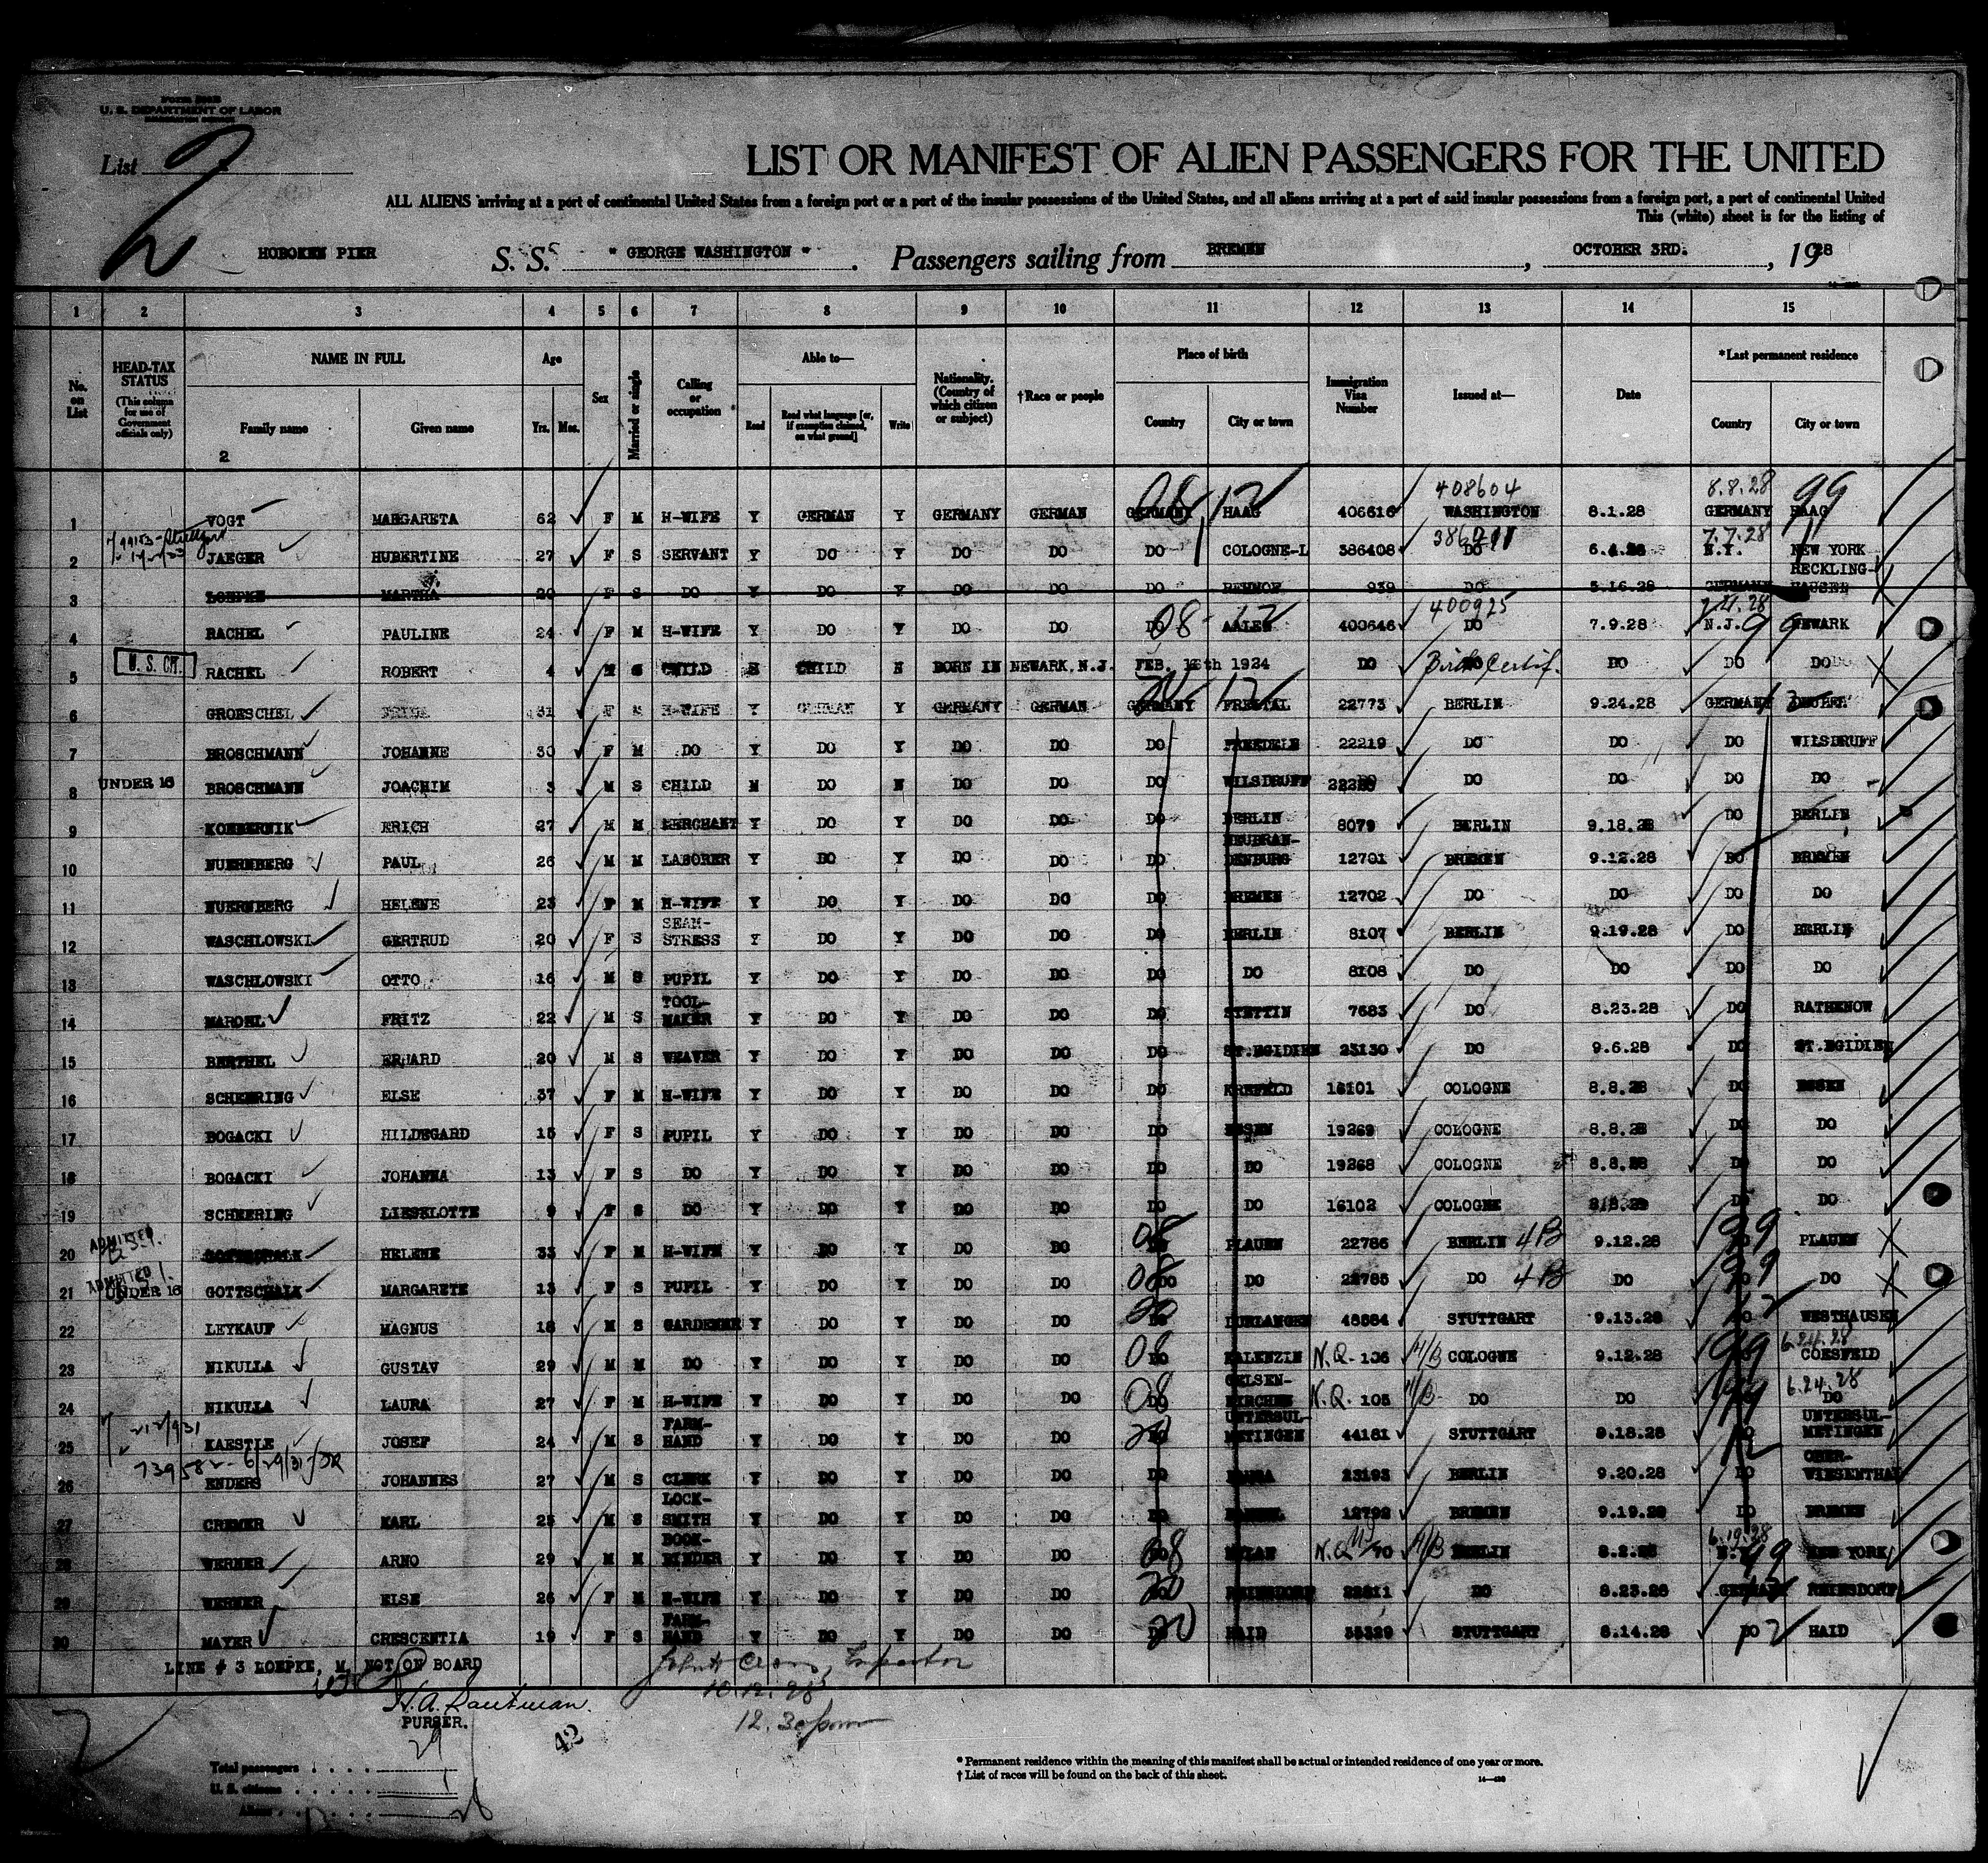 U. S. DEPARTMENT OF LABOR
List 2
LIST OR MANIFEST OF ALIEN PASSENGERS FOR THE UNITED
ALL ALIENS arriving at a port of continental United States from a foreign port or a port of the insular possessions of the United States, and all aliens arriving at a port of said insular possessions from a foreign port, a part of continental United
This (white) sheet is for the listing of
HOBOKEN PIER S. S. "GEORGE WASHINGTON". Passengers sailing from BREMEN, OCTOBER 3RD., 1928
1 2 3 4 5 6 7 8 9 10 11 12 13 14 15
No. on List
HEAD-TAX STATUS (This column for use of Government officials only)
NAME IN FULL
Family name Given name
Age
Yrs. Mos.
Sex
Married or single
Calling or occupation
Able to—
Read Read what language [or, if exemption claimed, on what ground] Write
Nationality. (Country of which citizen or subject)
†Race or people
Place of birth
Country City or town
Immigration Visa Number
Issued at—
Date
*Last permanent residence
Country City or town
2
408604 8.8.28 99
1 VOGT MARGARETA 62 F M H-WIFE Y GERMAN Y GERMANY GERMAN GERMANY HAAG 406616 WASHINGTON 8.1.28 GERMANY HAAG
7.7.28
2 JAEGER HUBERTINE 27 F S SERVANT Y DO Y DO DO DO COLOGNE-L 386408 DO N.Y. NEW YORK
RECKLING-
3 LOEPKE MARTHA 20 F S DO Y DO Y DO DO DO 939 DO 5.16.28 GERMANY HAUSEN
400925
4 RACHEL PAULINE 24 F M H-WIFE Y DO Y DO DO DO AALEN 400646 DO 7.9.28 N.J. NEWARK
5 U. S. CIT. RACHEL ROBERT 4 M S CHILD N CHILD N BORN IN NEWARK, N.J. FEB. 1924 DO Birth Certif. DO DO DO
6 GROESCHEL 31 F M H-WIFE Y GERMAN Y GERMANY GERMAN GERMANY FREITAL 22773 BERLIN 9.24.28 GERMANY
7 BROSCHMANN JOHANNE 30 F M DO Y DO Y DO DO DO 22219 DO DO DO WILSDRUFF
8 UNDER 16 BROSCHMANN JOACHIM 3 M S CHILD N DO N DO DO DO WILSDRUFF DO DO DO DO
9 KOMBERNIK ERICH 27 M M MERCHANT Y DO Y DO DO DO BERLIN 8079 BERLIN 9.18.28 DO BERLIN
NEUBRAN-
10 NUERNBERG PAUL 26 M M LABORER Y DO Y DO DO DO DENBURG 12701 BREMEN 9.12.28 DO BREMEN
11 NUERNBERG HELENE 23 F M H-WIFE Y DO Y DO DO DO BREMEN 12702 DO DO DO DO
SEAM-
12 WASCHLOWSKI GERTRUD 20 F S STRESS Y DO Y DO DO DO BERLIN 8107 BERLIN 9.19.28 DO BERLIN
13 WASCHLOWSKI OTTO 16 M S PUPIL Y DO Y DO DO DO DO 8108 DO DO DO DO
TOOL-
14 FRITZ 22 M S MAKER Y DO Y DO DO DO STETTIN 7683 DO 8.23.28 DO RATHENOW
15 BERTHEL ERHARD 20 M S WEAVER Y DO Y DO DO DO ST.EGIDIEN 23130 DO 9.6.28 DO ST.EGIDIEN
16 SCHEERING ELSE 37 F M H-WIFE Y DO Y DO DO DO KREFELD 16101 COLOGNE 8.8.28 DO ESSEN
17 BOGACKI HILDEGARD 15 F S PUPIL Y DO Y DO DO DO ESSEN 19269 COLOGNE 8.8.28 DO DO
18 BOGACKI JOHANNA 13 F S DO Y DO Y DO DO DO DO 19268 COLOGNE 8.8.28 DO DO
19 SCHEERING LIESELOTTE 9 F S DO Y DO Y DO DO DO DO 16102 COLOGNE 8.8.28 DO DO
20 ADMITTED GOTTSCHALK HELENE 33 F M H-WIFE Y DO Y DO DO 08 PLAUEN 22786 BERLIN 4B 9.12.28 199 PLAUEN
21 ADMITTED UNDER 16 GOTTSCHALK MARGARETE 13 F S PUPIL Y DO Y DO DO 08 DO DO 22785 DO 4B DO 199 DO
22 LEYKAUF MAGNUS 18 M S GARDENER Y DO Y DO DO 20 48884 STUTTGART 9.13.28 DO WESTHAUSEN
6.24.28
23 NIKULLA GUSTAV 29 M M DO Y DO Y DO DO 08 N.Q. 106 COLOGNE 9.12.28 199 COESFELD
GELSEN- 6.24.28
24 NIKULLA LAURA 27 F M H-WIFE Y DO Y DO DO 08 KIRCHEN N.Q. 105 DO DO 199 DO
FARM- UNTERSUL- UNTERSUL-
25 KAESTLE JOSEF 24 M S HAND Y DO Y DO DO 20 METINGEN 44181 STUTTGART 9.18.28 METINGEN
OBER-
26 ENDERS JOHANNES 27 M S CLERK Y DO Y DO DO DO 23193 BERLIN 9.20.28 DO WIESENTHAL
LOCK-
27 CREMER KARL 25 M S SMITH Y DO Y DO DO DO 12792 BREMEN 9.19.28 DO BREMEN
BOOK- 6.19.28
28 WERNER ARNO 29 M M BINDER Y DO Y DO DO 08 N.Q. 70 BERLIN 99 NEW YORK
29 WERNER ELSE 26 F M H-WIFE Y DO Y DO DO 20 REINSDORF 22811 DO 8.23.28 GERMANY REINSDORF
FARM-
30 MAYER CRESCENTIA 19 F S HAND Y DO Y DO DO 20 HAID STUTTGART 8.14.28 DO HAID
LINE # 3 LOEPKE, M. NOT ON BOARD
Inspector
10.12.28
12.30 pm
PURSER.
42
Total passengers 29
U. S. citizens 1
Aliens 28
* Permanent residence within the meaning of this manifest shall be actual or intended residence of one year or more.
† List of races will be found on the back of this sheet.